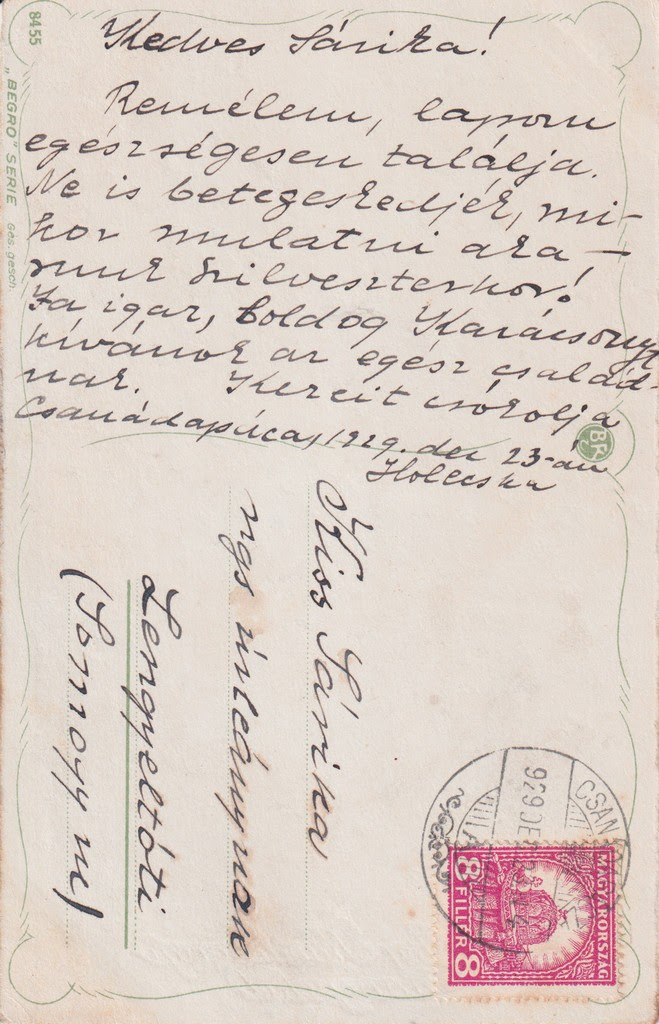 Kedves Sárika!
Remélem, lapom
egészségesen találja.
Ne is betegeskedjék, mi-
kor mulatni aka-
runk Szilveszterkor!
Ja igaz, boldog Karácsonyt
kívánok az egész család-
nak. Kezeit csókolja
Csanádapáca, 1929. dec 23-án
Holecska
Kiss Sárika
úrleánynak
Lengyeltóti
(Somogy m)
8455 "BEGRO" SERIE Ges. gesch.
BR
929 DE
CSAN
MAGYARORSZÁG
8 FILLÉR 8